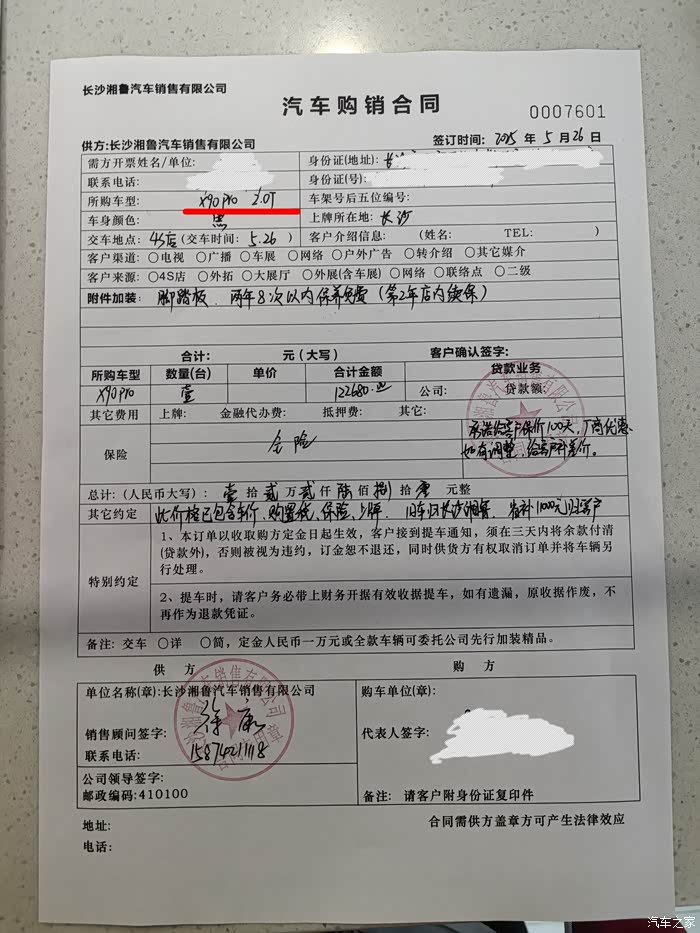 长沙湘鲁汽车销售有限公司
汽车购销合同
0007601
供方:长沙湘鲁汽车销售有限公司 签订时间: 2025 年 5 月 26 日
需方开票姓名/单位: 身份证(地址):
联系电话: 身份证(号):
所购车型: X90 Pro 2.0T 车架号后五位编号:
车身颜色: 黑 上牌所在地: 长沙
交车地点: 4S店 (交车时间: 5.26 ) 客户介绍信息: (姓名: TEL: )
客户渠道: ○电视 ○广播 ○车展 ○网络 ○户外广告 ○转介绍 ○其它媒介
客户来源: ○4S店 ○外拓 ○大展厅 ○外展(含车展) ○网络 ○联络点 ○二级
附件加装: 脚踏板、两年8次以内保养免费(第2年店内续保)
合计: 元(大写) 客户确认签字:
所购车型 数量(台) 单价 合计金额 贷款业务
X90 Pro 壹 122680.00 公司: 贷款额:
其它费用 上牌: 金融代办费: 抵押费: 其它:
保险 全险
承诺给客户保价100天,厂商优惠
如有调整,给客户补差价。
总计:(人民币大写): 壹 拾 贰 万 贰 仟 陆 佰 捌 拾 零 元整
其它约定 此价格已包含车价、购置税、保险、上牌. 旧车归长沙湘鲁. 1000元归客户
特别约定
1、本订单以收取购方定金日起生效,客户接到提车通知,须在三天内将余款付清
(贷款外),否则被视为违约,订金恕不退还,同时供货方有权取消订单并将车辆另
行处理。
2、提车时,请客户务必带上财务开据有效收据提车,如有遗漏,原收据作废,不
再作为退款凭证。
备注: 交车 ○详 ○简,定金人民币一万元或全款车辆可委托公司先行加装精品。
供 方 购 方
单位名称(章):长沙湘鲁汽车销售有限公司 购车单位(章):
销售顾问签字: 代表人签字:
联系电话: 15874021118
公司领导签字:
邮政编码:410100 备注: 请客户附身份证复印件
地址: 合同需供方盖章方可产生法律效应
电话:
汽车之家